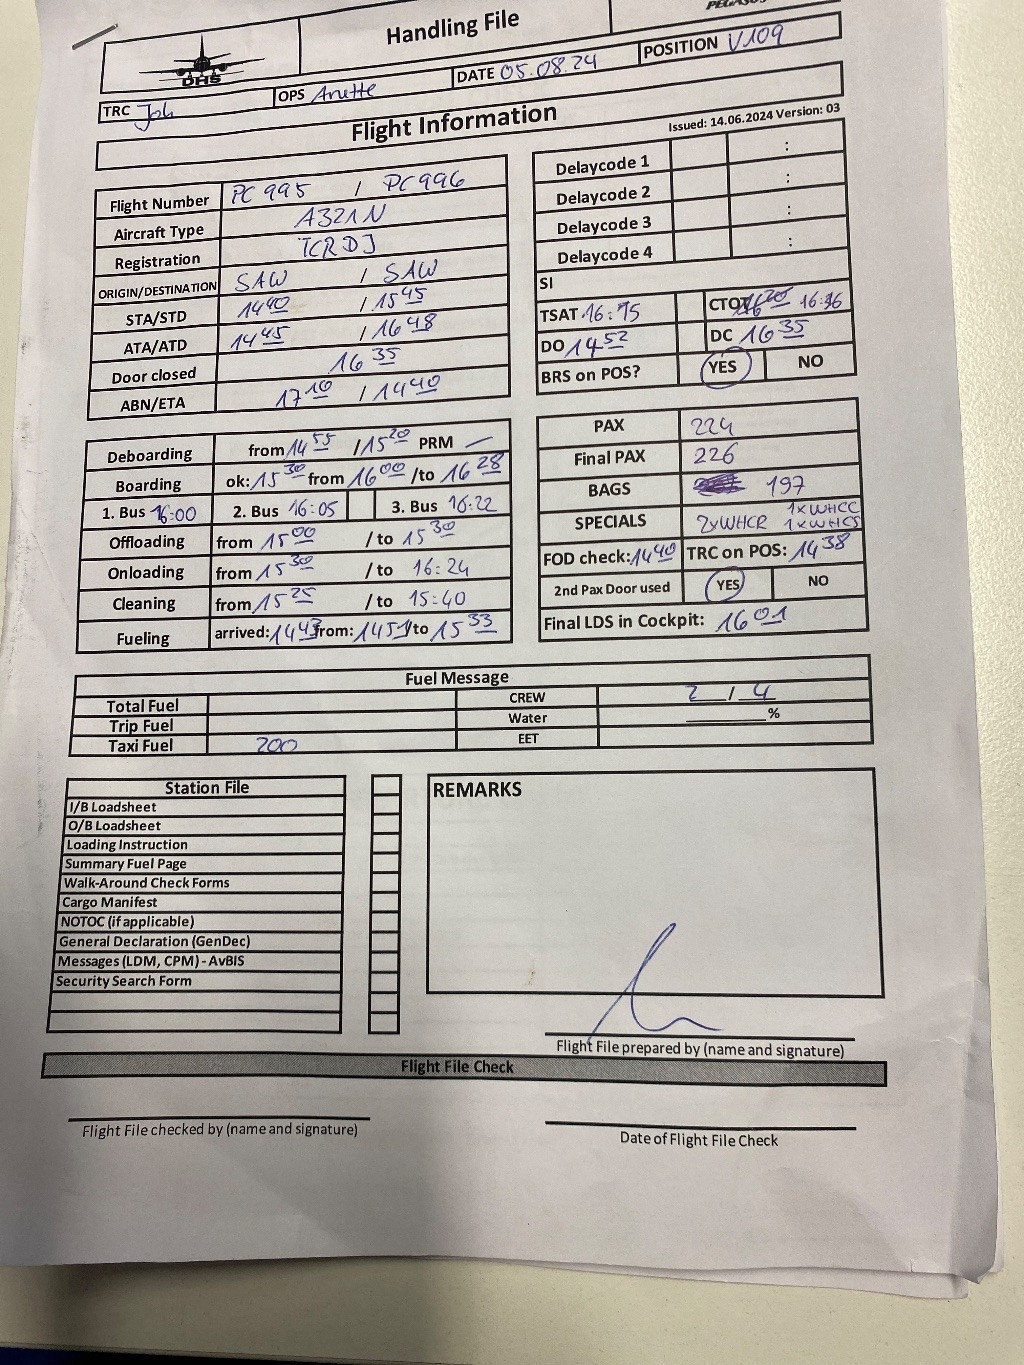 Handling File
DHS
TRC Joh OPS Anette DATE 05.08.24 POSITION V109
Flight Information
Issued: 14.06.2024 Version: 03
Flight Number PC 995 / PC 996
Aircraft Type A321N
Registration TCRDJ
ORIGIN/DESTINATION SAW / SAW
STA/STD 1440 / 1545
ATA/ATD 1445 / 1648
Door closed 1635
ABN/ETA 1710 / 1440
Delaycode 1 :
Delaycode 2 :
Delaycode 3 :
Delaycode 4 :
SI
TSAT 16:15 CTOT 16:36
DO 1452 DC 1635
BRS on POS? YES NO
Deboarding from 1455 / 1520 PRM —
Boarding ok: 1530 from 1600 /to 1628
1. Bus 16:00 2. Bus 16:05 3. Bus 16:22
Offloading from 1500 / to 1530
Onloading from 1530 / to 16:24
Cleaning from 1525 / to 15:40
Fueling arrived: 1443 from: 1451 /to 1533
PAX 224
Final PAX 226
BAGS 197
SPECIALS 2xWHCR 1xWHCC
1xWHCS
FOD check: 1440 TRC on POS: 1438
2nd Pax Door used YES NO
Final LDS in Cockpit: 1601
Fuel Message
Total Fuel CREW 2 / 4
Trip Fuel Water %
Taxi Fuel 200 EET
Station File
I/B Loadsheet
O/B Loadsheet
Loading Instruction
Summary Fuel Page
Walk-Around Check Forms
Cargo Manifest
NOTOC (if applicable)
General Declaration (GenDec)
Messages (LDM, CPM) - AvBIS
Security Search Form
REMARKS
Flight File prepared by (name and signature)
Flight File Check
Flight File checked by (name and signature)
Date of Flight File Check